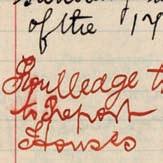 of the 17
Routledge to
to Report
Houses